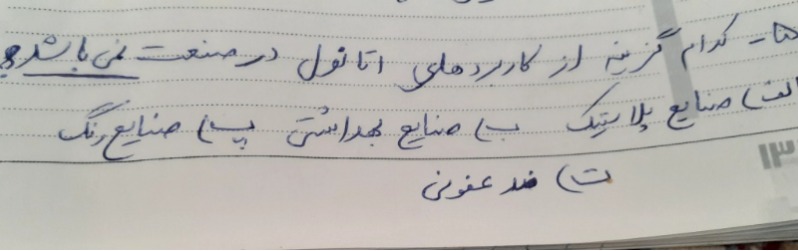 ۵- کدام گزینه از کاربردهای اتانول در صنعت نمی باشد؟
الف) صنایع پلاستیک ب) صنایع بهداشتی پ) صنایع رنگ
ت) ضد عفونی
۱۳